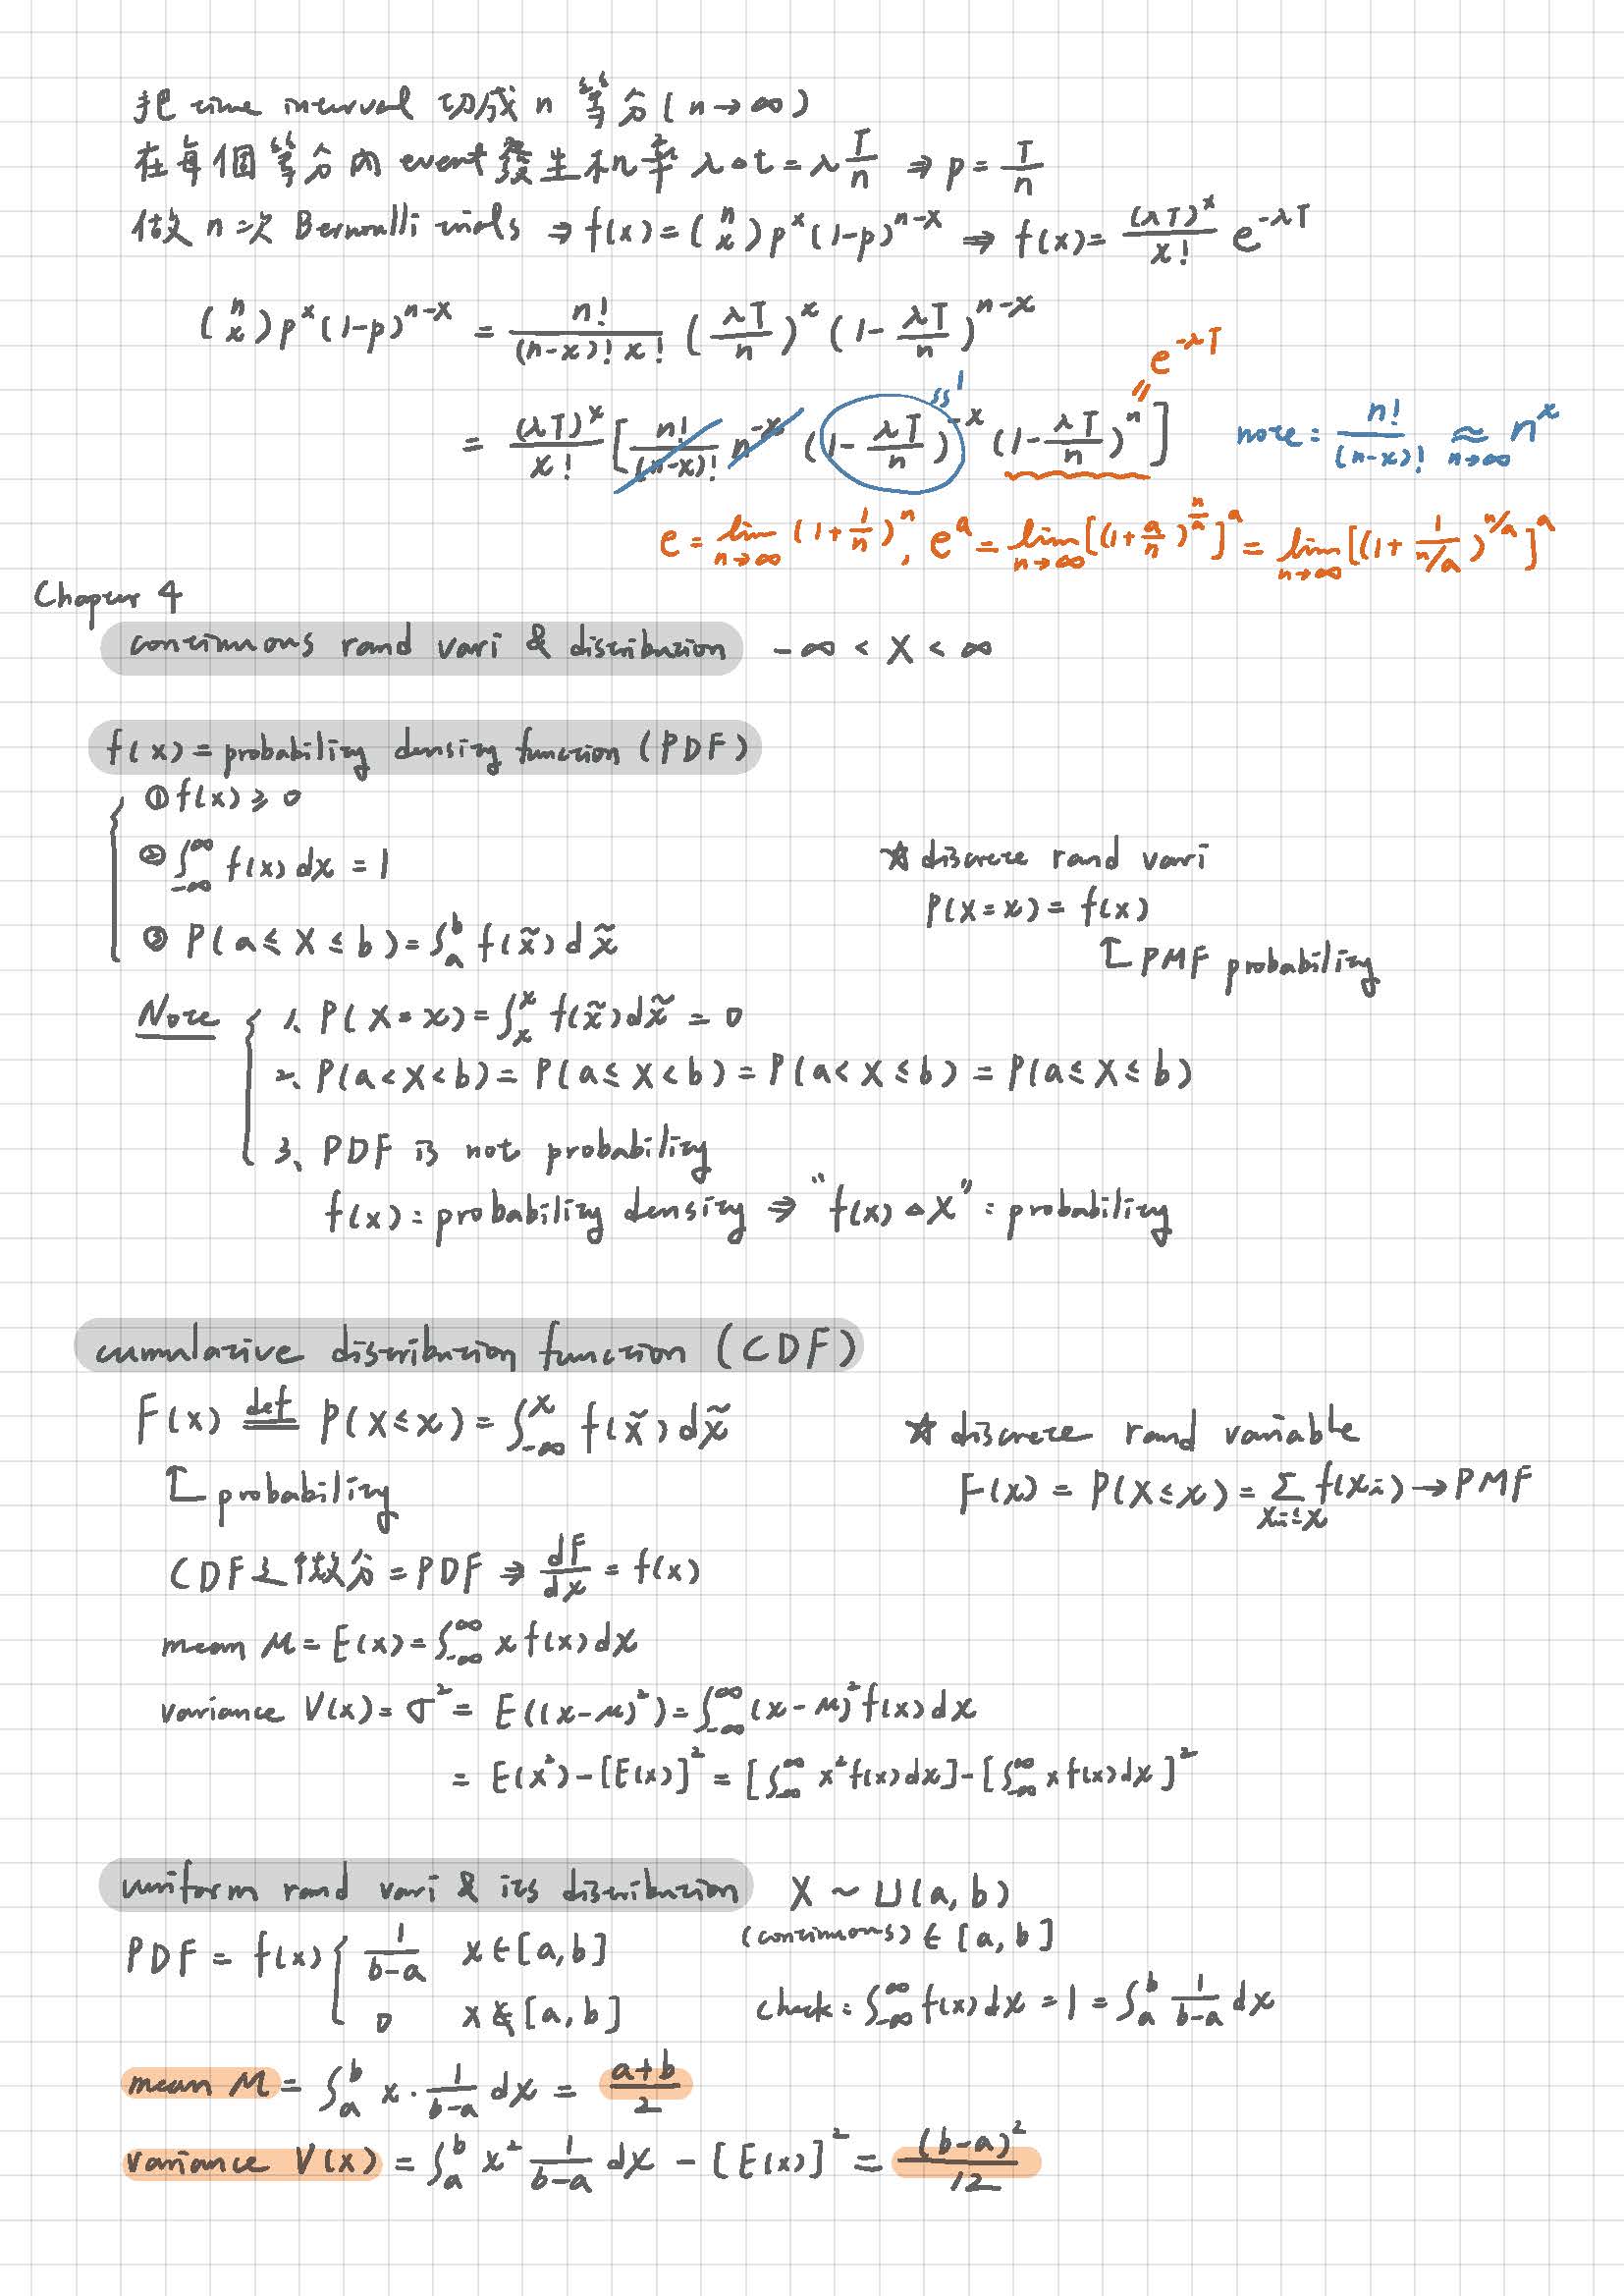 把 time interval 切成 n 等分 (n→∞)
在每個等分內 event 發生机率 λ△t = λ T/n ⇒ p = T/n
做 n 次 Bernoulli trials ⇒ f(x) = (n x) p^x (1-p)^{n-x} ⇒ f(x) = (λT)^x / x! e^{-λT}
(n x) p^x (1-p)^{n-x} = n! / (n-x)! x! (λT/n)^x (1 - λT/n)^{n-x}
e^{-λT}
= (λT)^x / x! [ n! / (n-x)! n^{-x} (1 - λT/n)^{-x} (1 - λT/n)^n ] ≈ 1 note: n! / (n-x)! ≈ n^x n→∞
e = lim n→∞ (1 + 1/n)^n, e^a = lim n→∞ [(1 + a/n)^{n/a}]^a = lim n→∞ [(1 + 1/(n/a))^{n/a}]^a
Chapter 4
continuous rand vari & distribution -∞ < X < ∞
f(x) = probability density function (PDF)
① f(x) ≥ 0
② ∫_{-∞}^{∞} f(x) dx = 1
☆ discrete rand vari
P(X = x) = f(x)
③ P(a ≤ X ≤ b) = ∫_a^b f(x̃) dx̃
PMF probability
Note 1、P(X = x) = ∫_x^x f(x̃) dx̃ = 0
2、P(a < X < b) = P(a ≤ X < b) = P(a < X ≤ b) = P(a ≤ X ≤ b)
3、PDF is not probability
f(x) : probability density ⇒ "f(x) △X" : probability
cumulative distribution function (CDF)
F(x) def= P(X ≤ x) = ∫_{-∞}^x f(x̃) dx̃
☆ discrete rand variable
probability
F(x) = P(X ≤ x) = Σ_{x_i ≤ x} f(x_i) → PMF
CDF之微分 = PDF ⇒ dF/dx = f(x)
mean μ = E(x) = ∫_{-∞}^{∞} x f(x) dx
variance V(x) = σ² = E((x-μ)²) = ∫_{-∞}^{∞} (x-μ)² f(x) dx
= E(x²) - [E(x)]² = [∫_{-∞}^{∞} x² f(x) dx] - [∫_{-∞}^{∞} x f(x) dx]²
uniform rand vari & its distribution X ~ U(a, b)
(continuous) ∈ [a, b]
PDF = f(x) { 1/(b-a) x ∈ [a, b]
0 x ∉ [a, b]
check : ∫_{-∞}^{∞} f(x) dx = 1 = ∫_a^b 1/(b-a) dx
mean μ = ∫_a^b x · 1/(b-a) dx = (a+b)/2
variance V(x) = ∫_a^b x² 1/(b-a) dx - [E(x)]² = (b-a)²/12